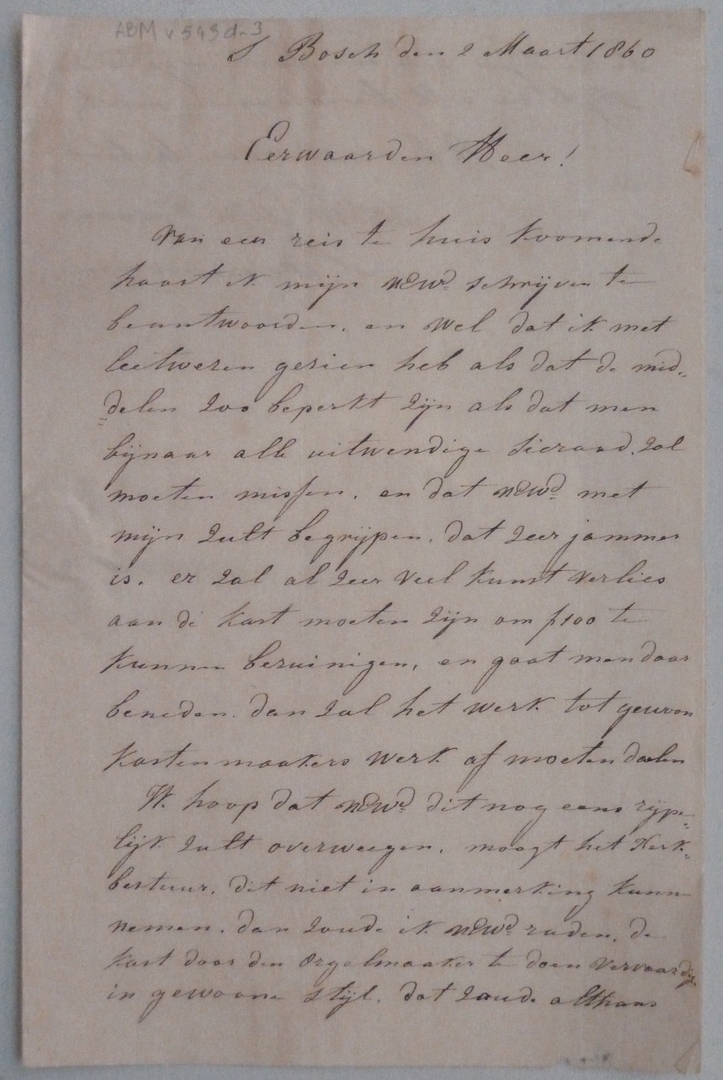 ABM v 549 d-3
S Bosch den 2 Maart 1860
Eerwaarden Heer!
Van een reis te huis koomende
haast ik mijn UEwd schrijven te
beantwoorden, en wel dat ik met
leetwezen gezien heb als dat de mid=
=delen zoo beperkt zijn als dat men
bijnaar alle uitwendige sieraad, zal
moeten missen, en dat UEwd met
mijn zult begrijpen, dat zeer jammer
is. er zal al zeer veel kunst verlies
aan de kast moeten zijn om ƒ 100 te
kunnen bezuinigen, en gaat men daar
beneden, dan zal het werk tot gewoon
kastenmaakers werk af moeten daalen
Ik hoop dat UEwd dit nog eens rijpe=
lijk zult overweegen, moogt het Kerk=
bestuur, dit niet in aanmerking kunne
nemen, dan zoude ik UEwd raden, de
kast door den Orgelmaaker te doen vervaardige
in gewoone stijl, dat zoude althans